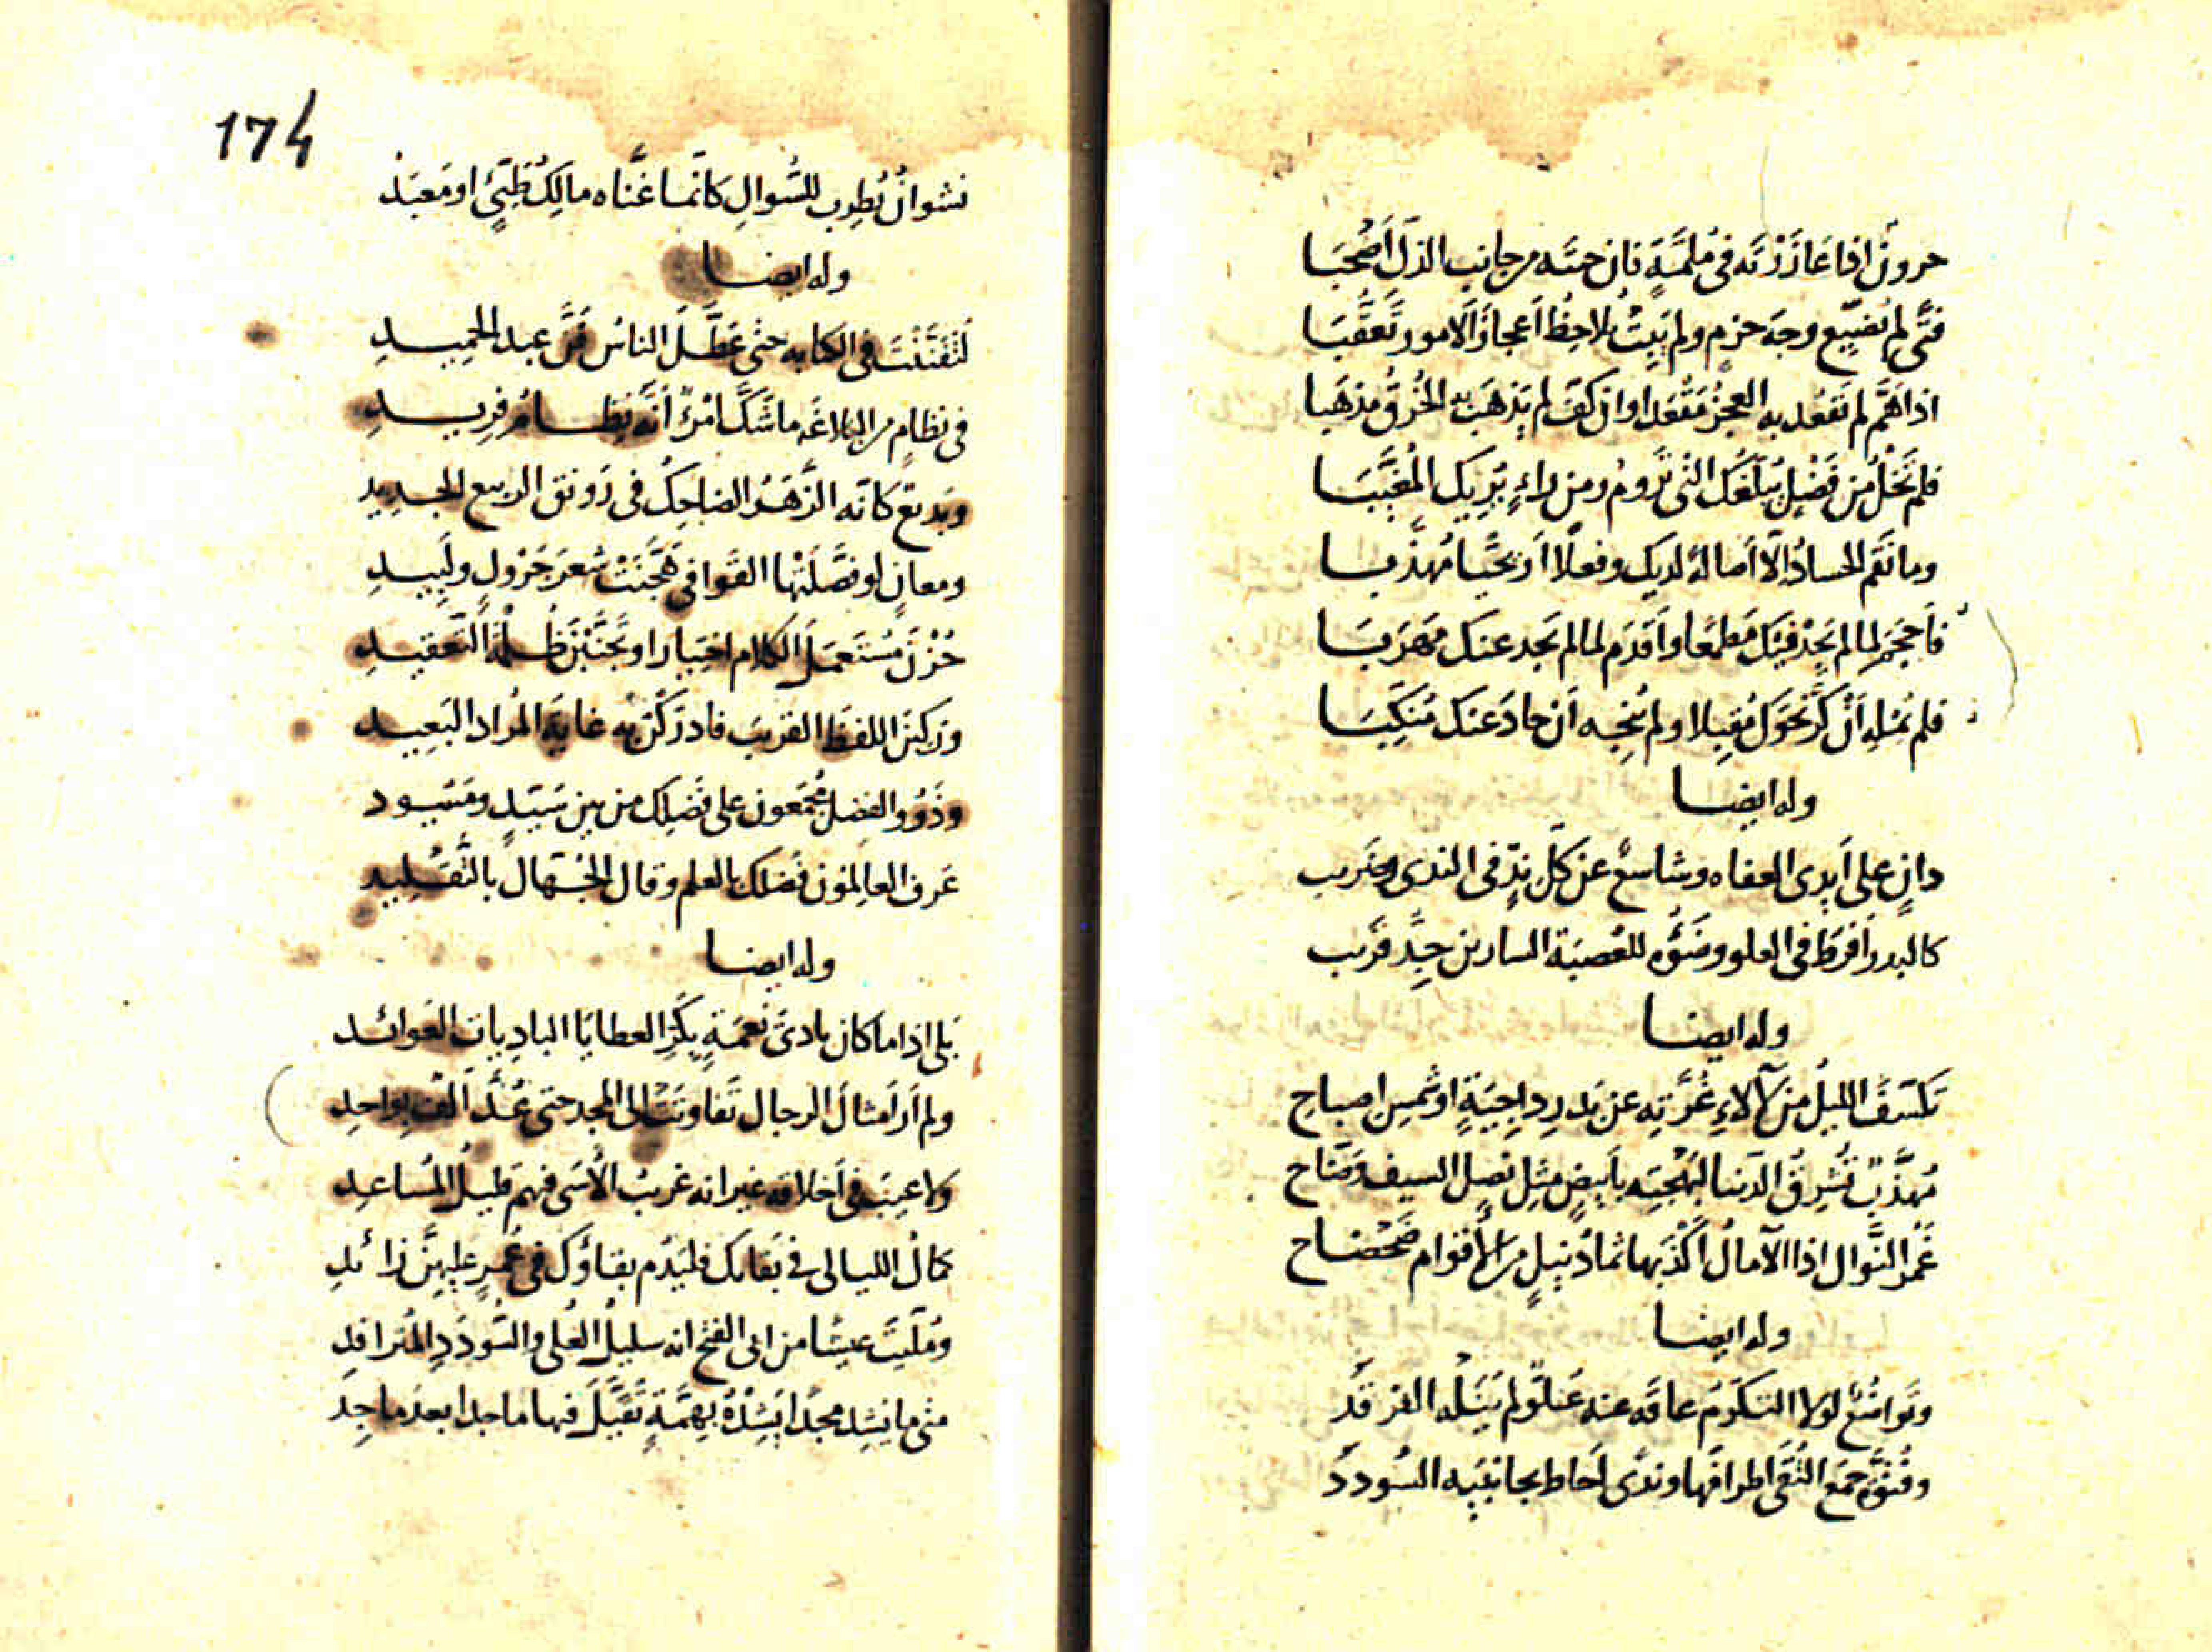 حرونٌ اذا عَازَزْتَه في مُلمَّةٍ فان جئته من جانب الذلّ أَصْحَبَا
فتًى لم يُضيّع وجهَ حزمٍ ولم يَبِتْ يُلاحِظُ اَعجازَ الامور تَعَقُّبَا
اذا همَّ لم تَقعُد به العجزُ مَقعَدا وان كفّ لم يَذهَب به الخُرقُ مذهَبا
فلم تَخْلُ من فَضْلٍ يُبلّغُك التى تَرومُ ومن راءٍ يُرِيك المُغَيَّبَا
وما نَقَم الحسادُ الّا اَصالةً لديك وفعلًا اَرْيحيًّا مُهذَّبا
فاَحجَمَ لما لم يَجِدْ فيكَ مَطمَعًا واَقدَم لما لم يَجد عنك مَهرَبَا
فلم يُغْنِهِ اَنْ كَرَّ نَحوَكَ مُقبِلا ولم يُنجِه اَن حادَ عنك مُنَكِّبَا
وله ايضا
دانٍ على اَيدى العفاه وشاسعٌ عن كلّ ندٍّ فى الندى وضَريب
كالبدر اَفرَطَ فى العلو وضَوْؤه للعُصبَة السارين جِدُّ قَريب
وله ايضا
تَكشَّفَ الليلُ من لَآلاءِ غُرَّتِه عن بَدرِ داجِيَةٍ او شمسِ اصباحِ
مُهذَّبٌ تُشرِقُ الدنيا لبَهْجَتِه باَبيضٍ مِثلِ نصلِ السيف وَضّاح
غَمْرُ النَّوال اذا الآمالُ اَكْذَبَها ثمادُ نيلٍ من الأقوام ضَحْضَاح
وله ايضا
وتَواضُعٌ لولا التكرّمُ عاقَه عنه عُلوٌّ لم يَنَلْه الفرقَدُ
وفُتُوَّةٌ جمَع التُّقَى اطرافَها وندًى اَحاط بجانبَيه السُودَدُ
174
نشوانُ يُطرب للسُّوالِ كانّما غنَّاه مالِكُ طَيّئٍ او مَعبَد
وله ايضا
لَتفَنَّنْتَ فى الكتابه حتى عَطَّلَ الناسُ فَنَّ عبد الحميدِ
فى نظامٍ من البلاغه ما شَكَّ امْرُؤٌ اَنَّه نظامُ فريدِ
وبَديعٌ كانّه الزَّهَرُ الضاحكُ فى رَونق الربيع الجديد
ومعانٍ لو فصَّلَتْها القَوافى هَجَّنَتْ شعرَ جَرْولٍ ولَبيدِ
حُزْنَ مُستَعمَلَ الكلام اختيارا وتَجَنَّبْنَ ظُلْمةَ التَّعقيدِ
ورَكِبْنَ اللفظَ القريبَ فادرَكْنَ به غايَةَ المراد البَعيد
وذَوُو الفضل مُجمَعون على فَضلِك من بين سَيّدٍ ومَسُود
عَرف العالِمُون فَضلَك بالعلم وقال الجُهّال بالتَّقليد
وله ايضا
بَلى اذا ما كان بادئَ نعمَةٍ بِكْرِ العطايَا البادِياتِ العَوائد
ولم اَرَ اَمثالَ الرجال تَفاوتَتْ الى المجد حتى عُدَّ اَلفٌ بواحدِ
ولا عيبَ فى اَخلاقه غير انه غريبُ الأسَى فيهم قليلُ المُساعد
كمالُ الليالى فى بَقائك فليَدُم بقاؤُك فى عُمرٍ عليهنَّ زائدِ
ومُلّيتَ عيشًا من ابى الفتح انه سليلُ العُلى والسُّودَدِ المُترافدِ
متى ما يَشِد مجدًا يَشِدْهُ بهِمَّةٍ تَقَيَّلَ فيها ماجدا بعدَ ماجِدِ